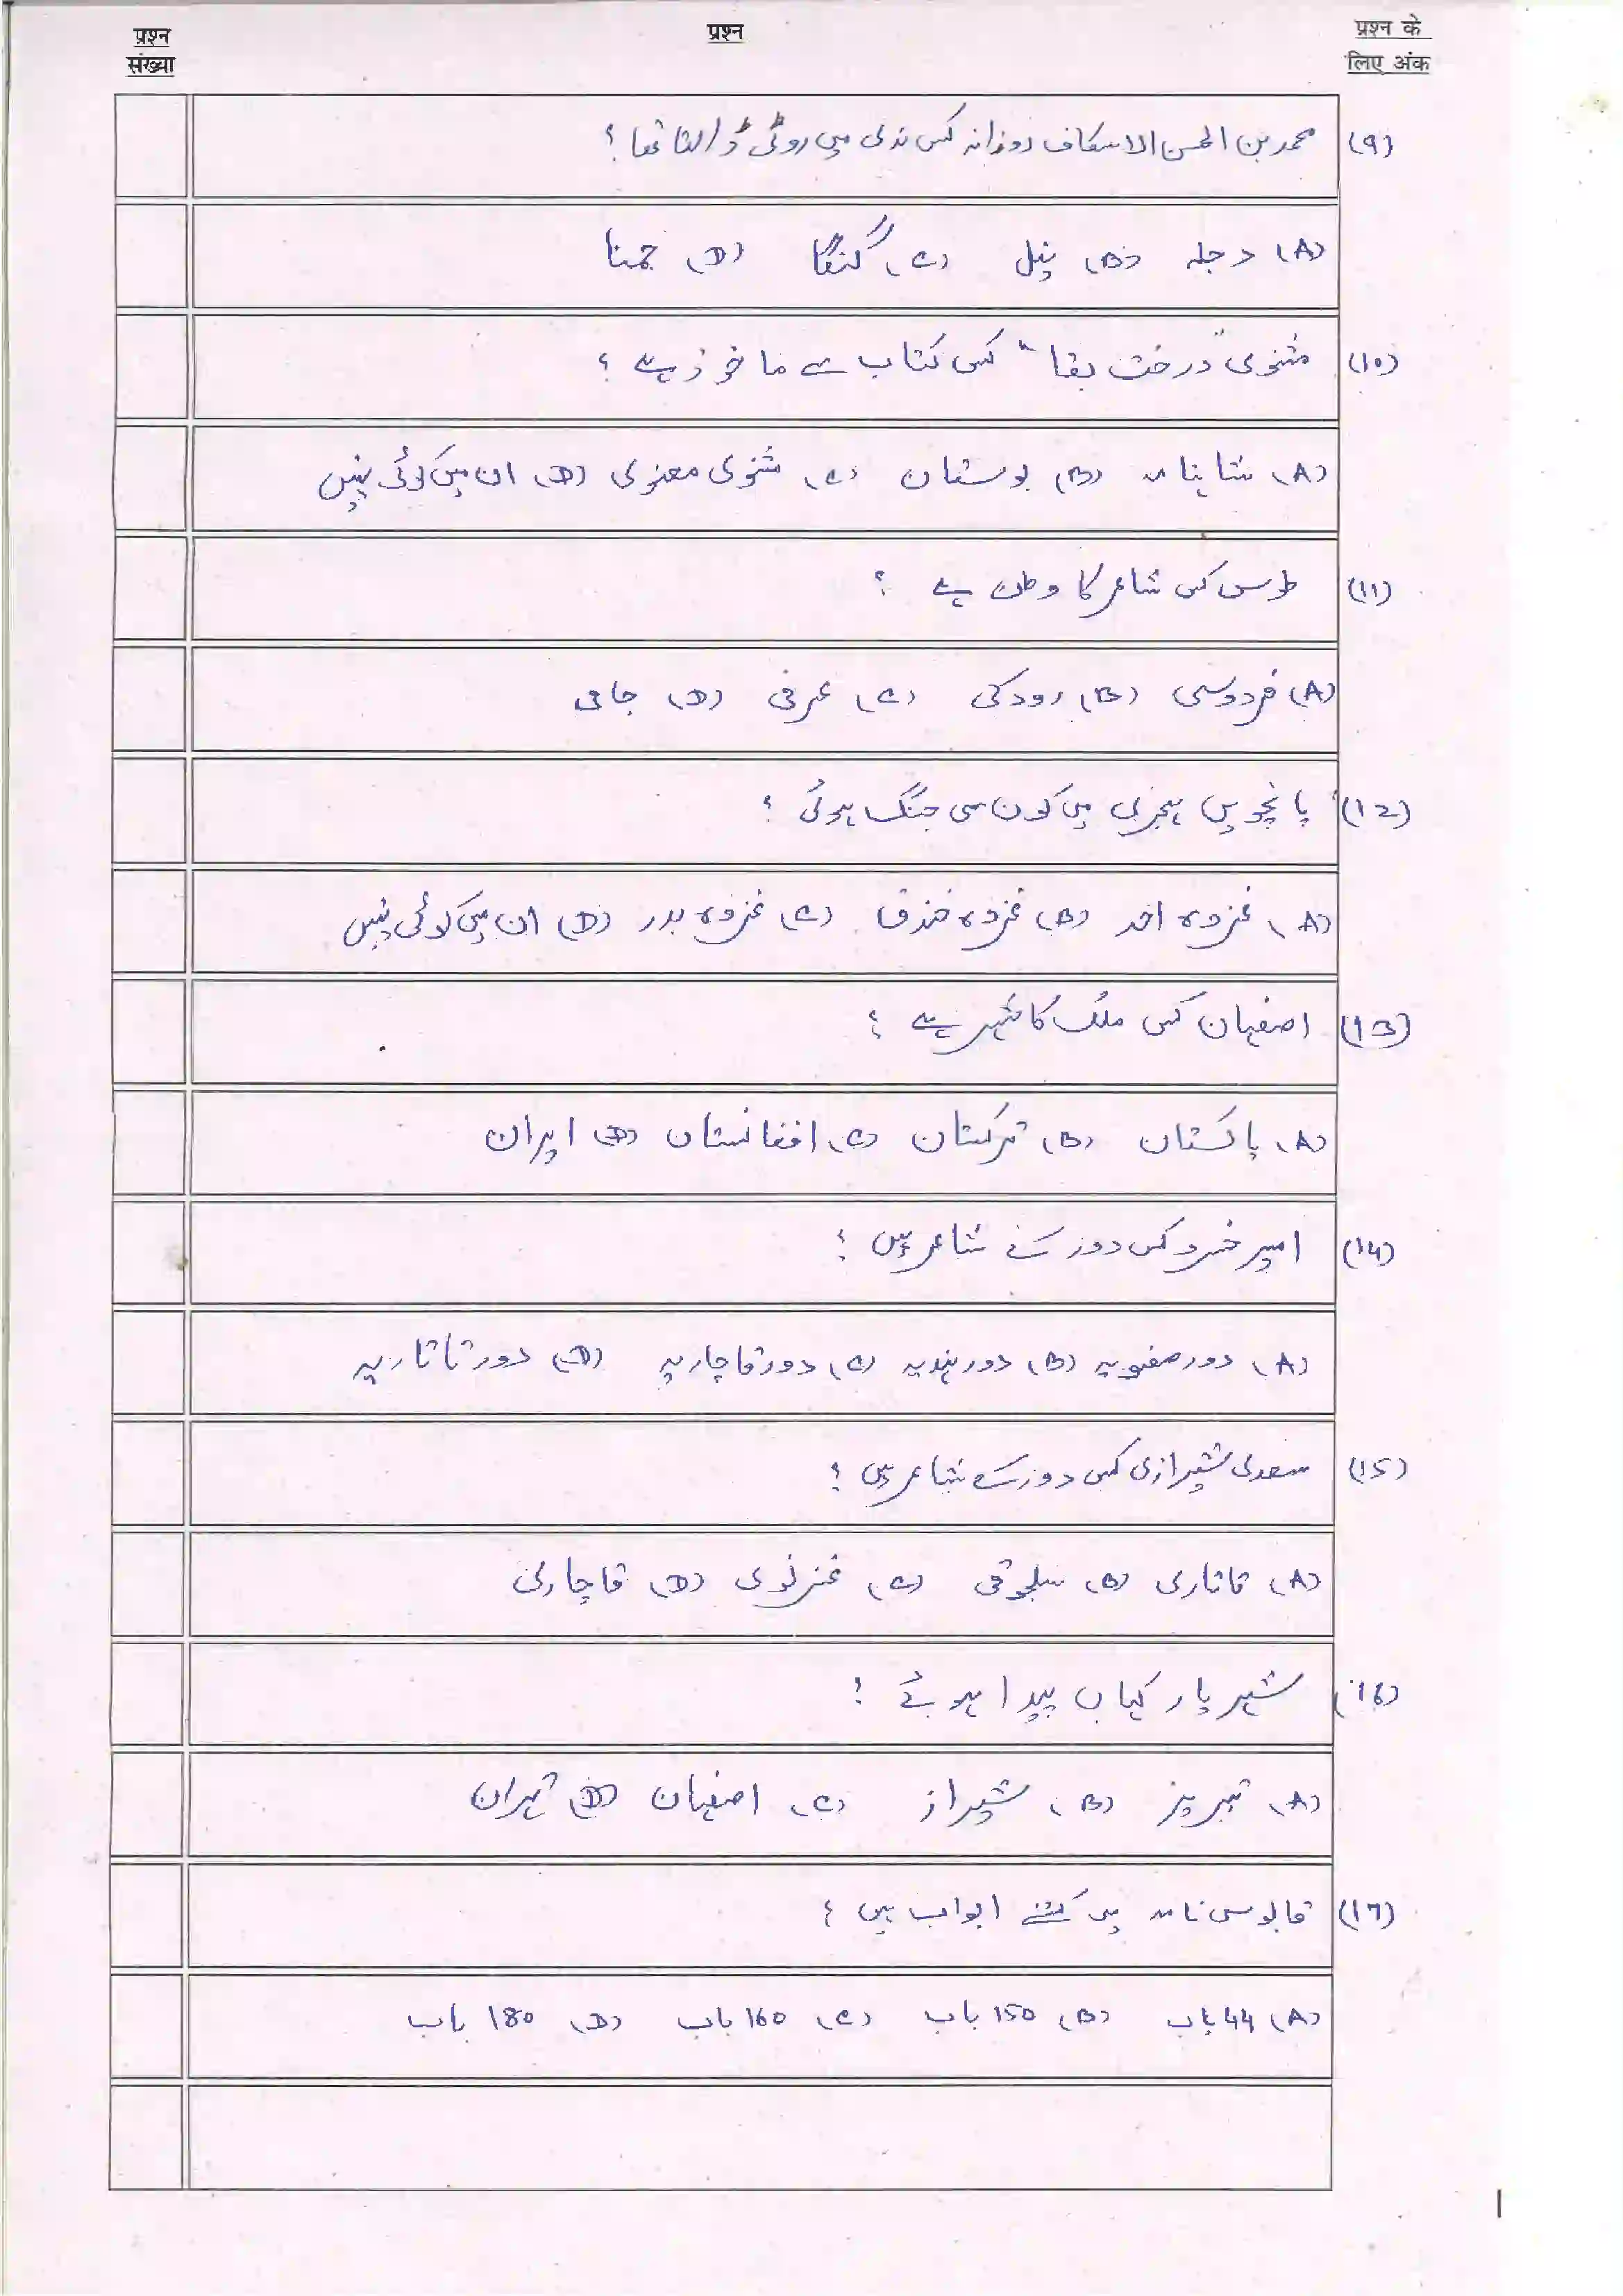 प्रश्न संख्या
प्रश्न
प्रश्न के लिए अंक
(۹) محمد بن الحسن الاسکاف روزانہ کس ندی میں روٹی ڈالتا تھا؟
(A) دجلہ (B) نیل (C) گنگا (D) جمنا
(۱۰) مثنوی "درخت بقا" کس کتاب سے ماخوذ ہے؟
(A) شاہنامہ (B) بوستان (C) مثنوی معنوی (D) ان میں کوئی نہیں
(۱۱) طوس کس شاعر کا وطن ہے ؟
(A) فردوسی (B) رودکی (C) عرفی (D) جامی
(12) پانچویں ہجری میں کون سی جنگ ہوئی ؟
(A) غزوہ احد (B) غزوہ خندق (C) غزوہ بدر (D) ان میں کوئی نہیں
(13) اصفہان کس ملک کا شہر ہے ؟
(A) پاکستان (B) ترکستان (C) افغانستان (D) ایران
(۱۴) امیر خسرو کس دور کے شاعر ہیں ؟
(A) دور صفویہ (B) دور ہندیہ (C) دور قاچاریہ (D) دور تاتاریہ
(۱۵) سعدی شیرازی کس دور کے شاعر ہیں ؟
(A) تاتاری (B) سلجوقی (C) غزنوی (D) قاچاری
(۱۶) شہریار کہاں پیدا ہوئے ؟
(A) تبریز (B) شیراز (C) اصفہان (D) تہران
(۱۷) قابوس نامہ میں کتنے ابواب ہیں ؟
(A) 44 باب (B) 150 باب (C) 160 باب (D) 180 باب